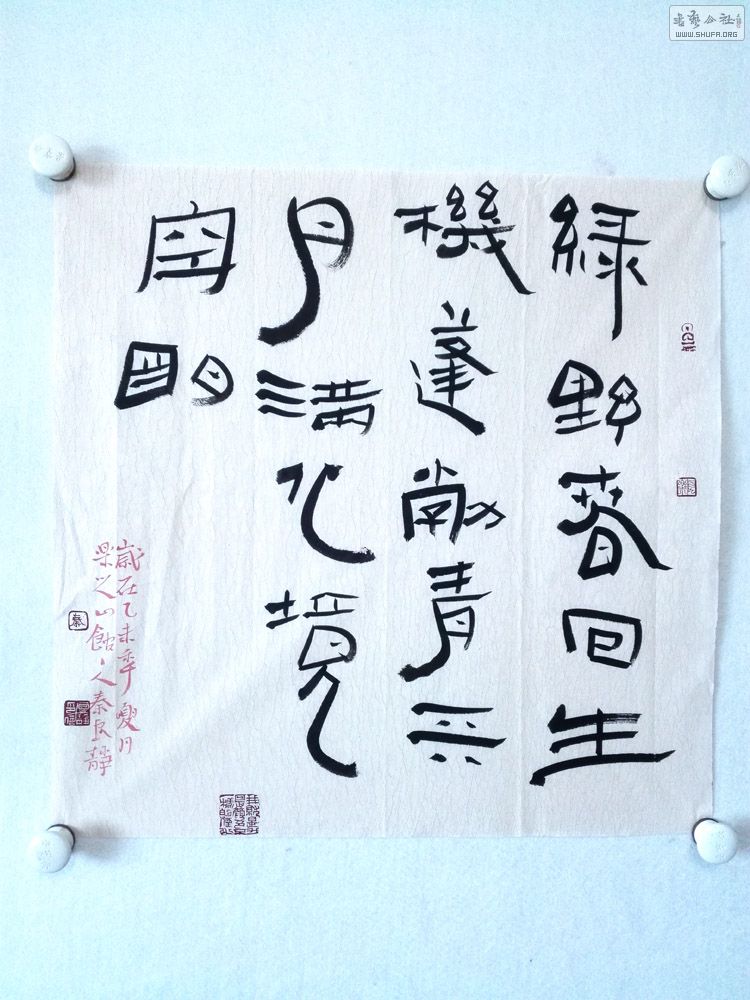 綠野春回生
機蓬勃青天
月滿化境
空明
歲在乙未年夏月
山館人秦良靜
秦
書藝公社
WWW.SHUFA.ORG